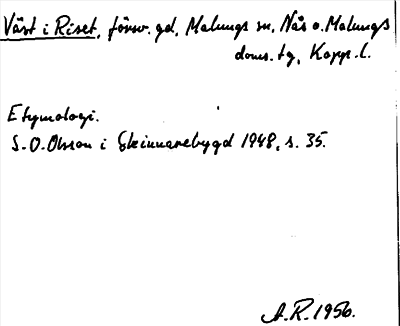 Väst i Riset, försv. gd, Malungs sn, Nås o. Malungs
doms. tg, Kopp. l.
Etymologi.
S. O. Olsson i Skinnarebygd 1948, s. 35.
A. R. 1956.